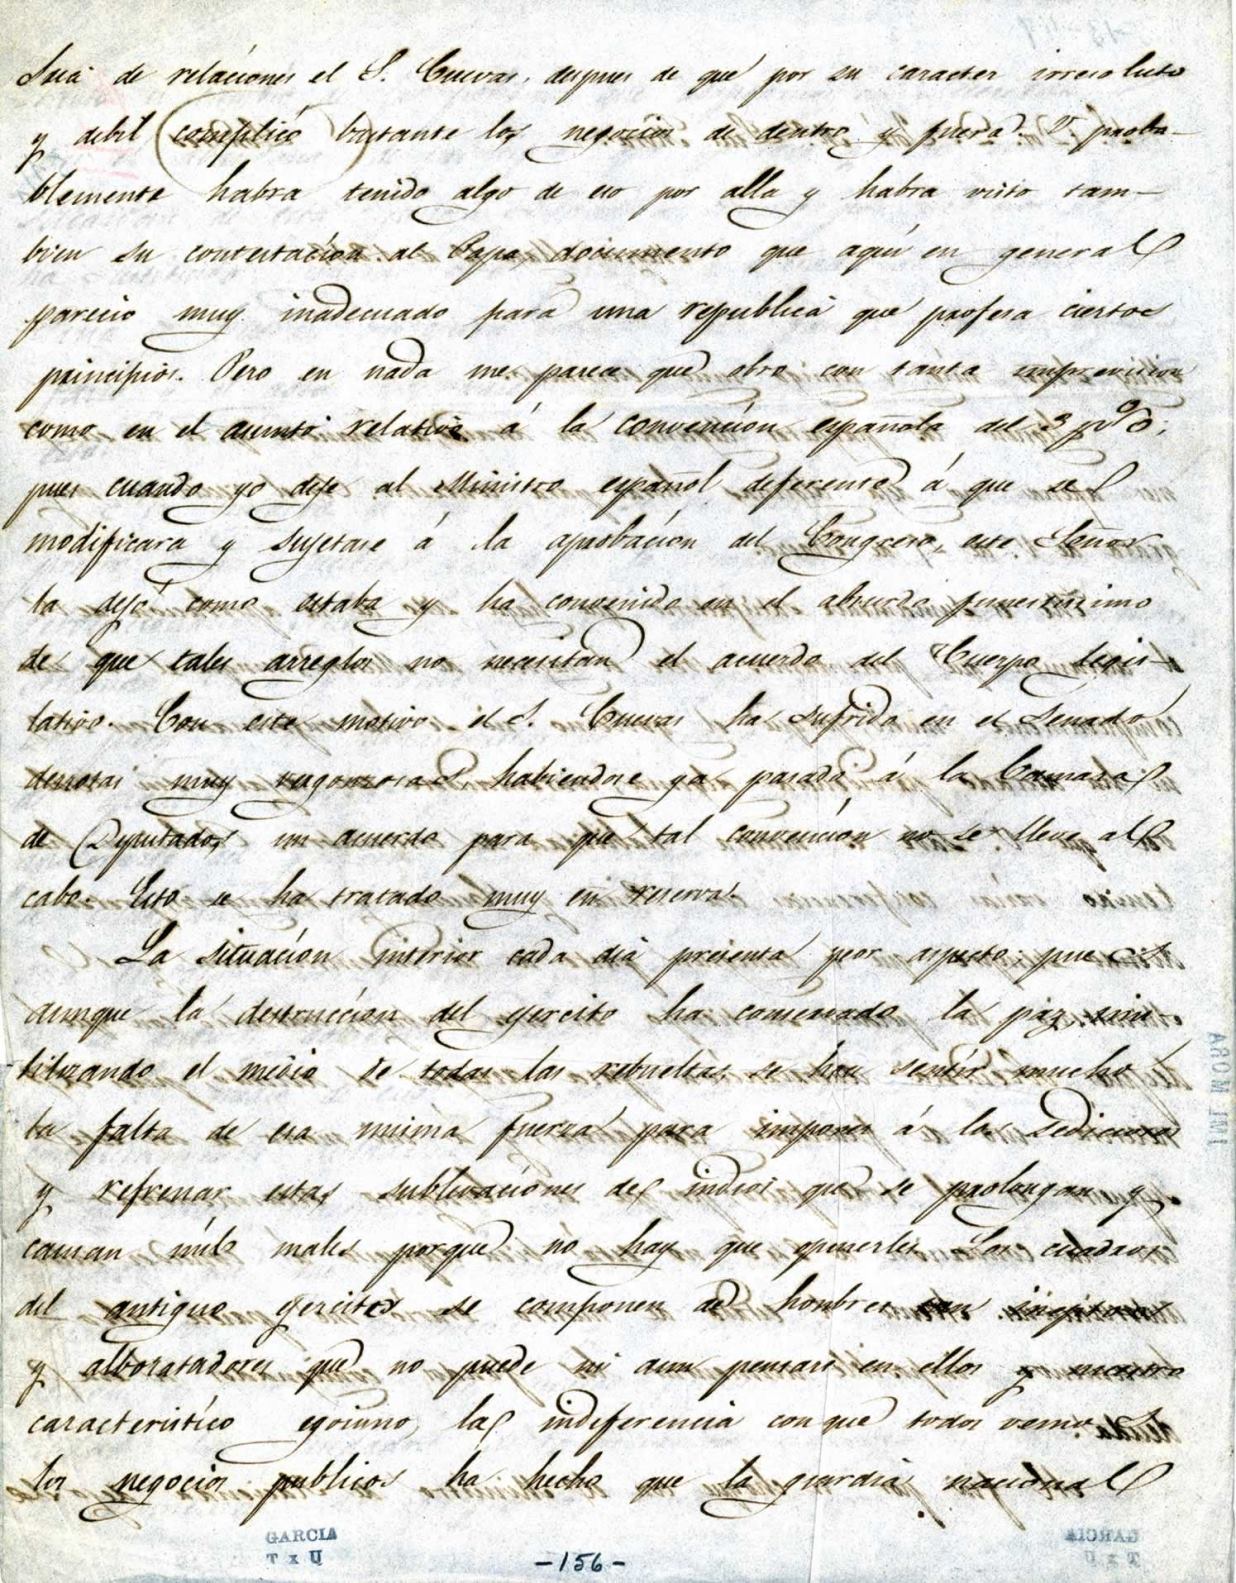 de relaciones el S. Cuevas, despues de que por su caracter irresoluto
y debil complicó bastante los negocios de dentro y fuera. V. proba-
blemente habra tenido algo de eso por alla y habra visto tam-
bien su contestacion al Papa, documento que aqui en general
parecio muy inadecuado para una republica que profesa ciertos
principios. Pero en nada me parece que obro con tanta imprevision
como en el asunto relativo á la convencion española del 3 pr%;
pues cuando yo deje al Ministro español deferente á que se
modificara y sujetase á la aprobacion del Congreso, este Señor
la dejó como estaba y ha convenido en el absurdo funestisimo
de que tales arreglos no necesitan el acuerdo del Cuerpo Legis-
lativo. Con este motivo el S. Cuevas ha sufrido en el Senado
derrotas muy vergonzosas habiendose ya pasado á la Camara
de Diputados un acuerdo para que tal convencion no se lleve al
cabo. Esto se ha tratado muy en reserva.
La situacion interior cada dia presenta peor aspecto, pues
aunque la destruccion del ejercito ha conservado la paz, inu-
tilizando el medio de todas las rebueltas, se hace sentir mucho
la falta de esa misma fuerza para imponer á los sediciosos
y refrenar estas sublevaciones de indios que se prolongan y
causan mil males porque no hay que oponerles. Los cuadros
del antiguo ejercito se componen de hombres tan ineptos
y alborotadores que no puede ni aun pensarse en ellos y nuestro
caracteristico egoismo, la indiferencia con que todos vemos
los negocios publicos ha hecho que la guardia nacional
GARCIA
T x U
-156-